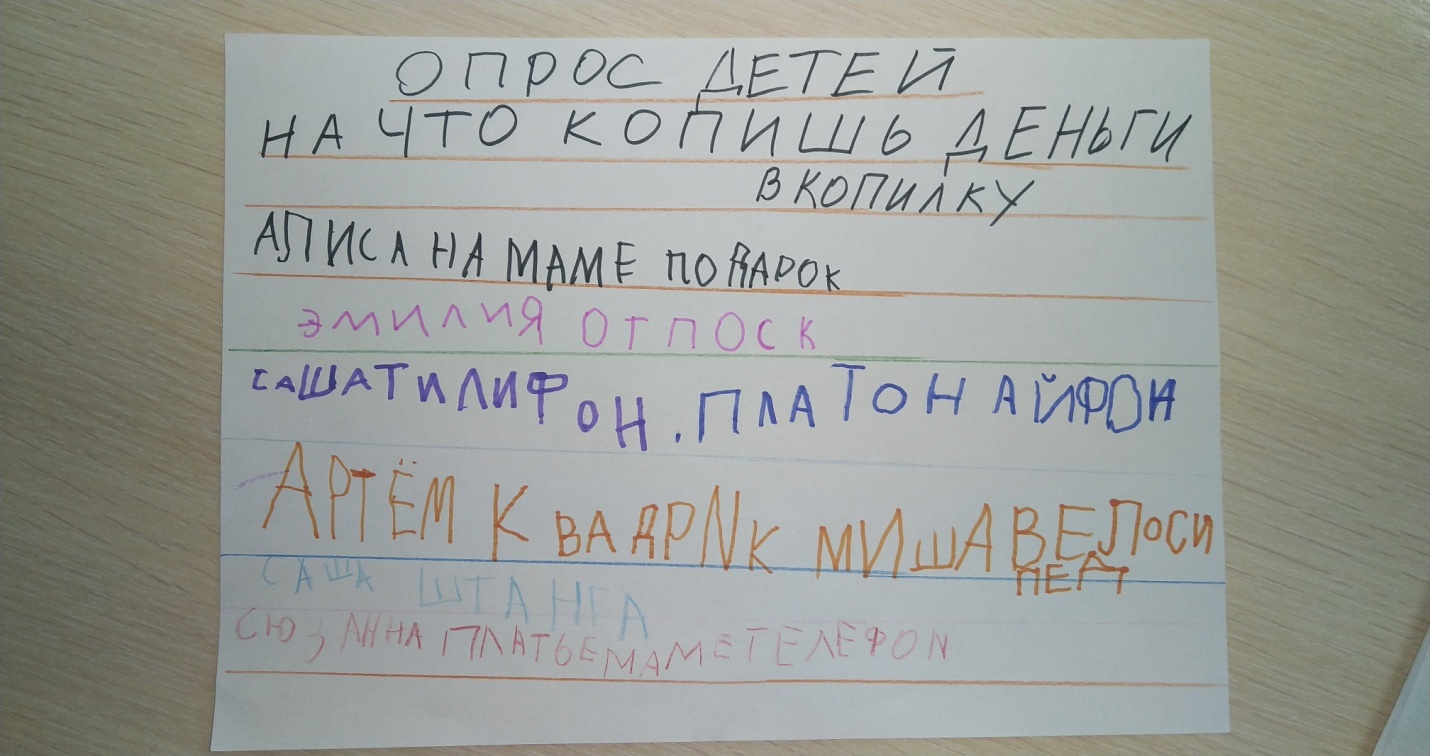 ОПРОС ДЕТЕЙ
НА ЧТО КОПИШЬ ДЕНЬГИ
В КОПИЛКУ
АЛИСА НА МАМЕ ПОДАРОК
ЭМИЛИЯ ОТПОСК
САША ТИЛИФОН. ПЛАТОН АЙФОН
АРТЁМ КВАДРИК МИША ВЕЛОСИ
ПЕД
САША ШТАНГА
СЮЗАННА ПЛАТЬЕ МАМЕ ТЕЛЕФОН